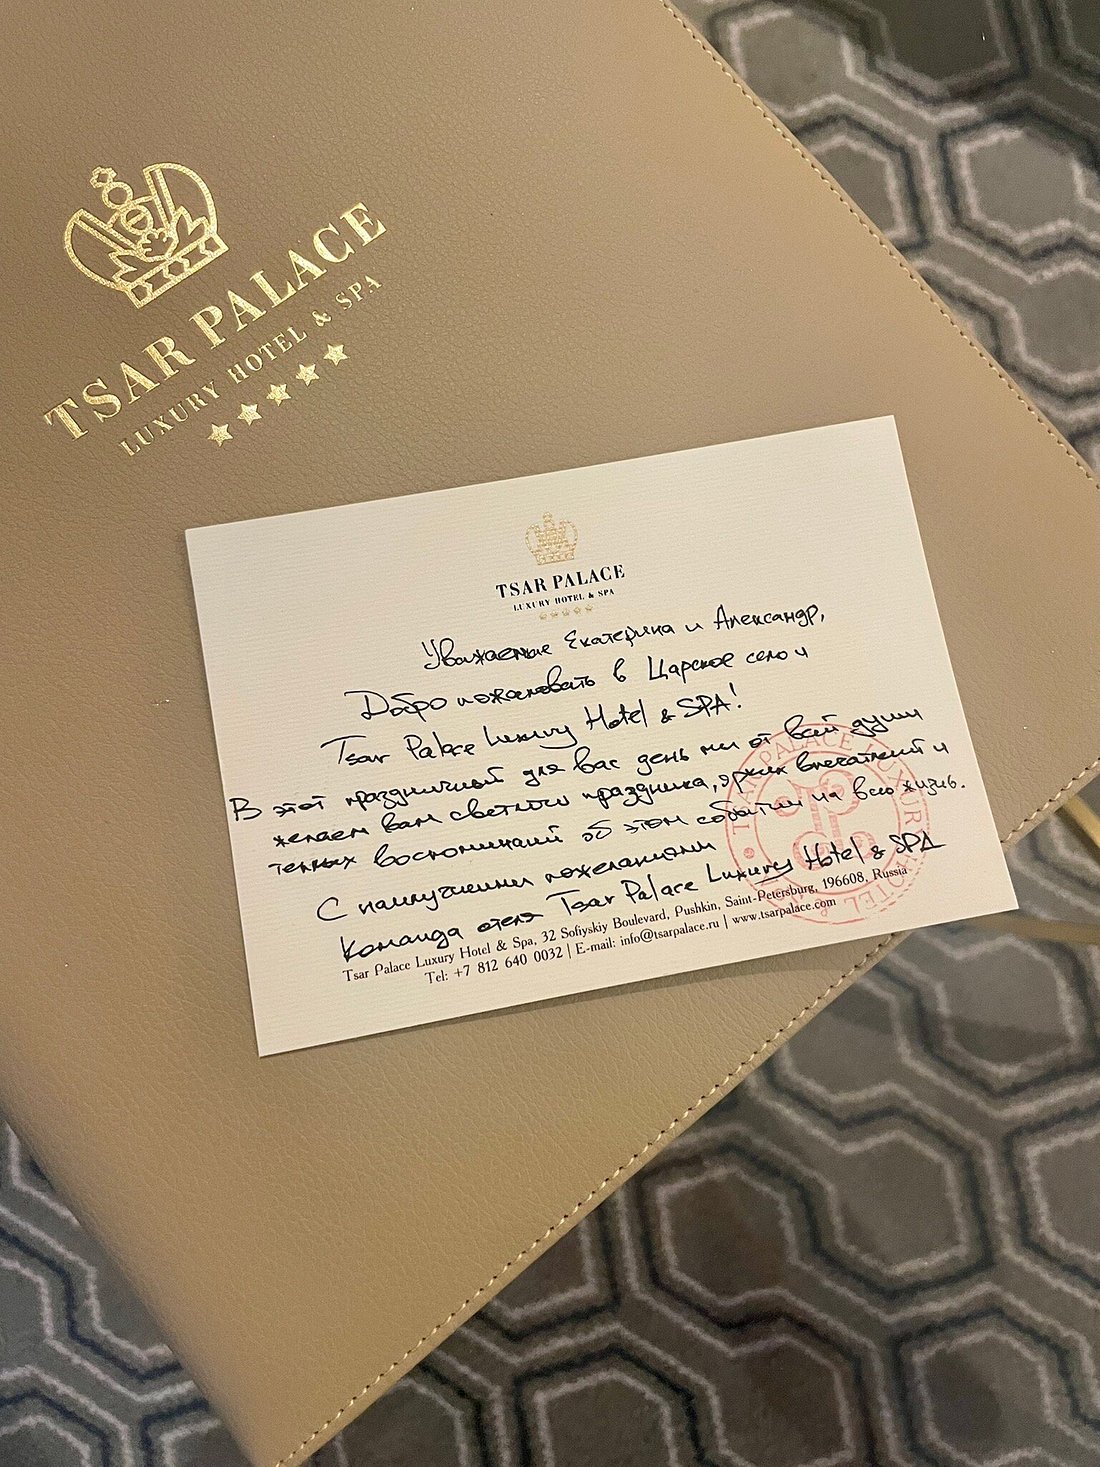 TSAR PALACE
LUXURY HOTEL & SPA
TSAR PALACE
LUXURY HOTEL & SPA
Уважаемые Екатерина и Александр,
Добро пожаловать в Царское село и
Tsar Palace Luxury Hotel & SPA!
В этот праздничный для вас день мы от всей души
желаем вам светлого праздника, ярких впечатлений и
теплых воспоминаний об этом событии на всю жизнь.
С наилучшими пожеланиями
Команда отеля Tsar Palace Luxury Hotel & SPA
Tsar Palace Luxury Hotel & Spa, 32 Sofiyskiy Boulevard, Pushkin, Saint-Petersburg, 196608, Russia
Tel: +7 812 640 0032 | E-mail: info@tsarpalace.ru | www.tsarpalace.com
TSAR PALACE LUXURY HOTEL &